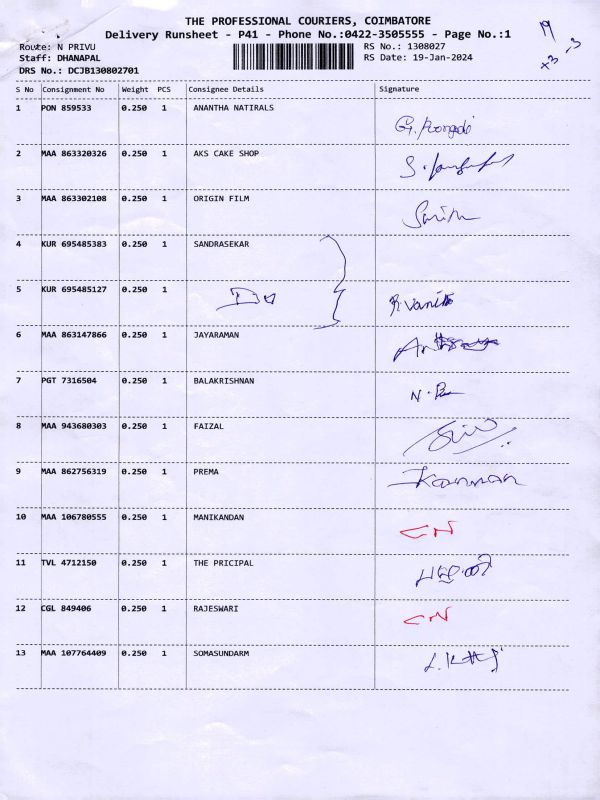 THE PROFESSIONAL COURIERS, COIMBATORE
Delivery Runsheet - P41 - Phone No.:0422-3505555 - Page No.:1
Route: N PRIVU
RS No.: 1308027
Staff: DHANAPAL
RS Date: 19-Jan-2024
DRS No.: DCJB130802701
S No Consignment No Weight PCS Consignee Details Signature
1 PON 859533 0.250 1 ANANTHA NATIRALS
2 MAA 863320326 0.250 1 AKS CAKE SHOP
3 MAA 863302108 0.250 1 ORIGIN FILM
4 KUR 695485383 0.250 1 SANDRASEKAR
5 KUR 695485127 0.250 1 R. Vanitha
6 MAA 863147866 0.250 1 JAYARAMAN
7 PGT 7316504 0.250 1 BALAKRISHNAN
8 MAA 943680303 0.250 1 FAIZAL
9 MAA 862756319 0.250 1 PREMA Kannan
10 MAA 106780555 0.250 1 MANIKANDAN CN
11 TVL 4712150 0.250 1 THE PRICIPAL
12 CGL 849406 0.250 1 RAJESWARI CN
13 MAA 107764409 0.250 1 SOMASUNDARM